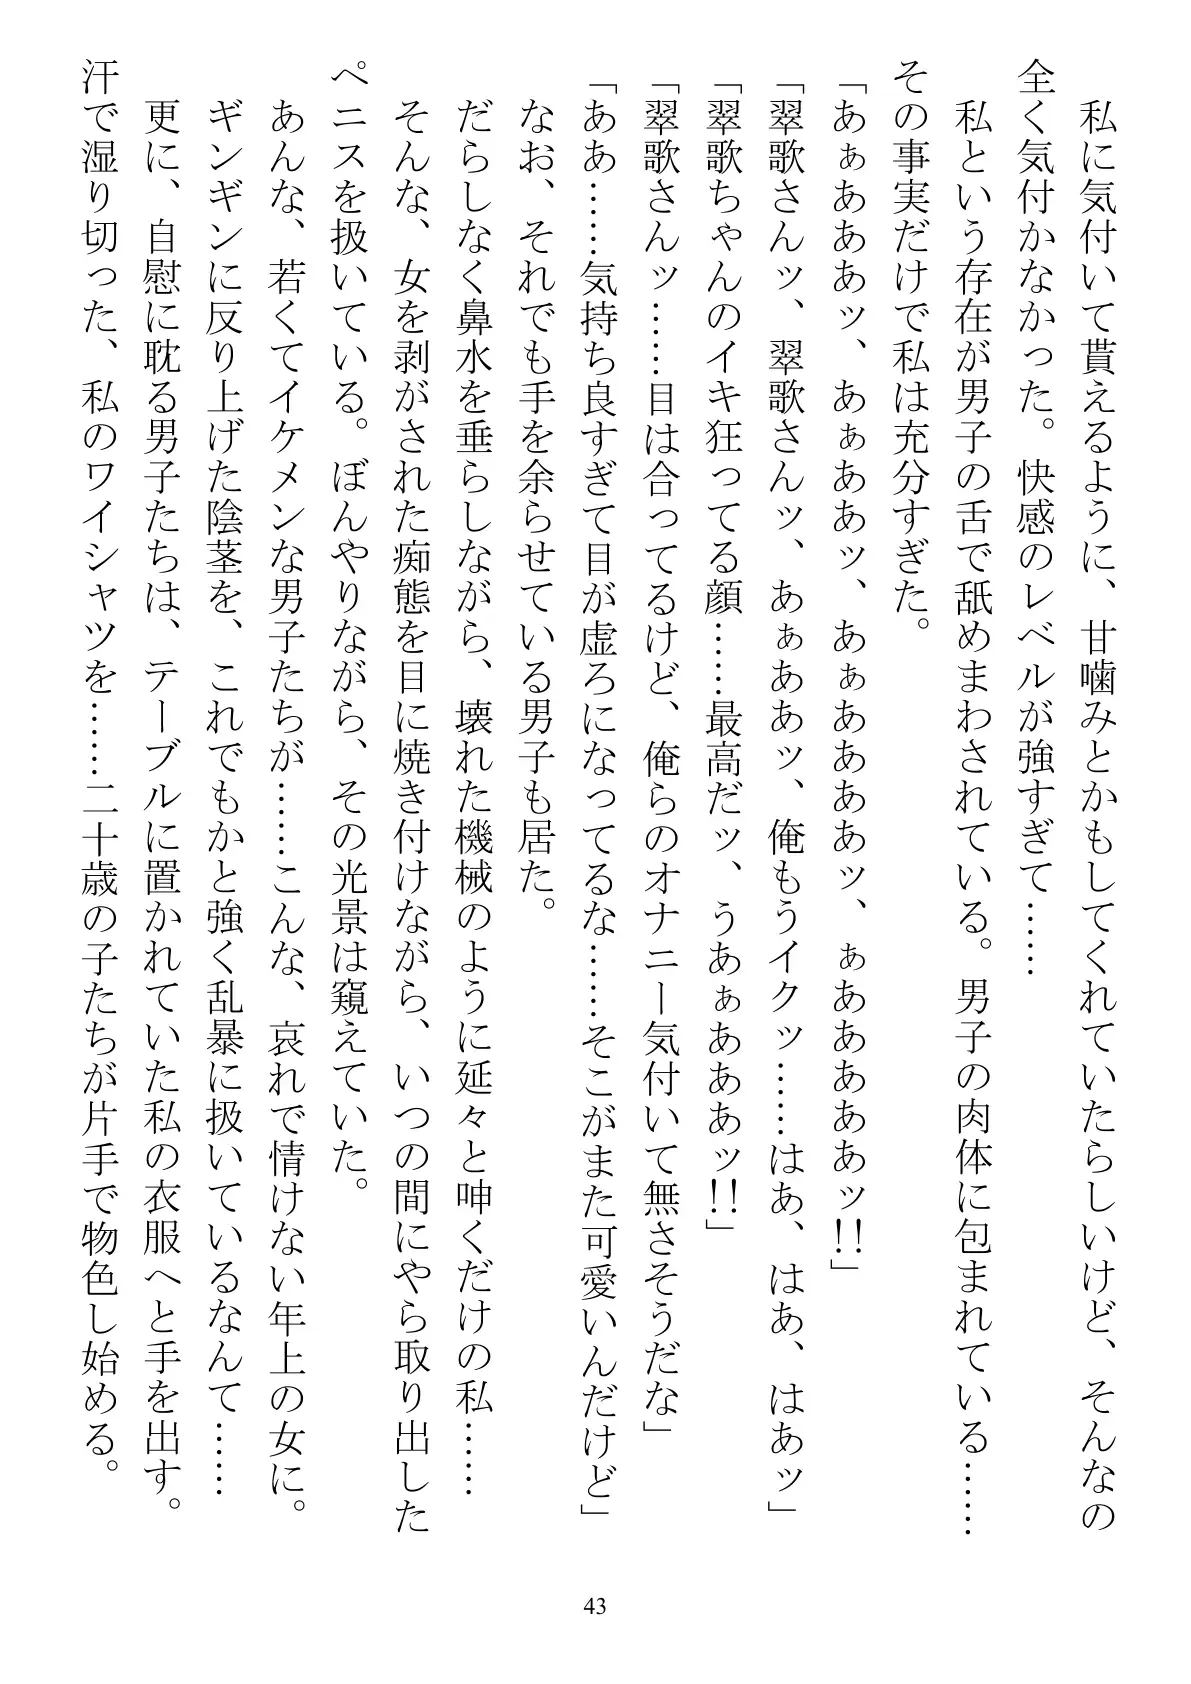 私に気付いて貰えるように、甘噛みとかもしてくれていたらしいけど、そんなの
全く気付かなかった。快感のレベルが強すぎて……
　私という存在が男子の舌で舐めまわされている。男子の肉体に包まれている……
その事実だけで私は充分すぎた。
「あぁあああッ、あぁああッ、あぁあああああッ、ぁあああああッ!!」
「翠歌さんッ、翠歌さんッ、あぁああッ、俺もうイクッ……はあ、はあ、はあッ」
「翠歌ちゃんのイキ狂ってる顔……最高だッ、うあぁあああッ!!」
「翠歌さんッ……目は合ってるけど、俺らのオナニー気付いて無さそうだな」
「ああ……気持ち良すぎて目が虚ろになってるな……そこがまた可愛いんだけど」
　なお、それでも手を余らせている男子も居た。
　だらしなく鼻水を垂らしながら、壊れた機械のように延々と呻くだけの私……
　そんな、女を剥がされた痴態を目に焼き付けながら、いつの間にやら取り出した
ペニスを扱いている。ぼんやりながら、その光景は窺えていた。
　あんな、若くてイケメンな男子たちが……こんな、哀れで情けない年上の女に。
　ギンギンに反り上げた陰茎を、これでもかと強く乱暴に扱いているなんて……
　更に、自慰に耽る男子たちは、テーブルに置かれていた私の衣服へと手を出す。
汗で湿り切った、私のワイシャツを……二十歳の子たちが片手で物色し始める。
43